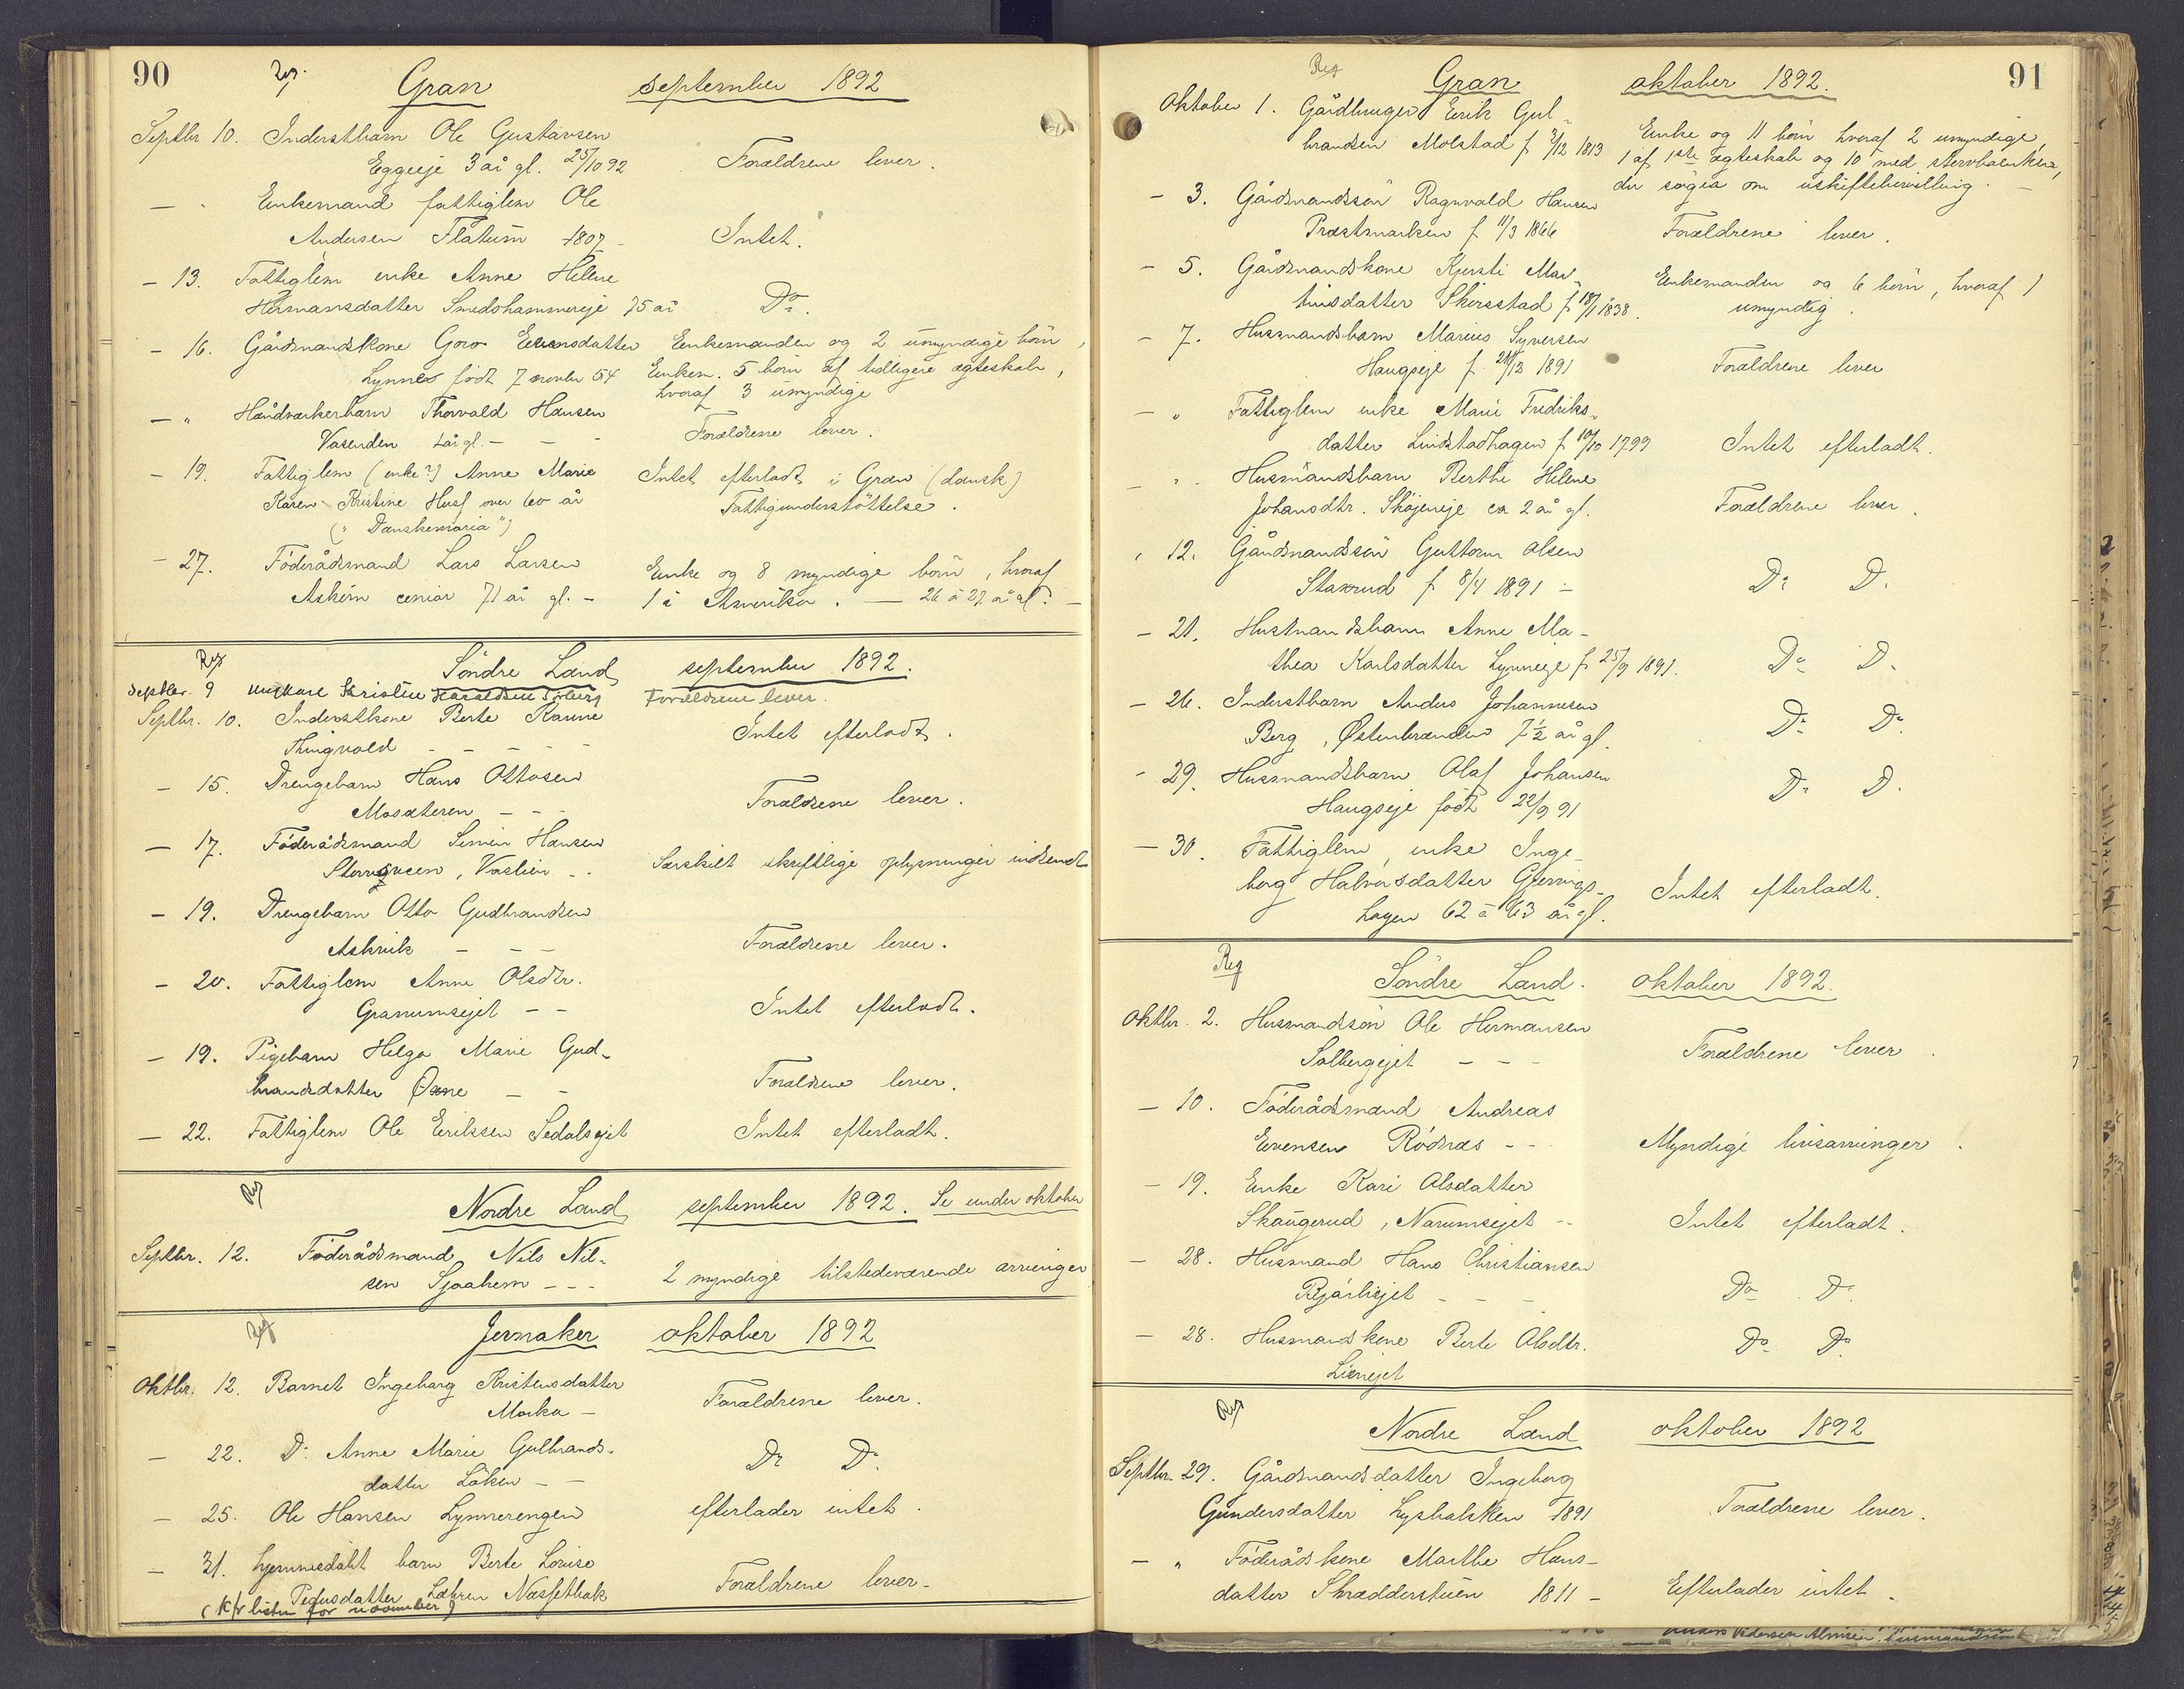 90
Reg.
Gran september 1892
Septbr 10. Inderstbarn Ole Gustavsen
Eggeeje 3 år gl. 25/10 92 Forældrene lever.
— " Enkemand fattiglem Ole
Andersen Flatum 1807 - Intet.
— 13. Fattiglem enke Anne Helene
Hermansdatter Smedshammereje 75 år Do.
— 16. Gårdmandskone Goro Evensdatter Enkemanden og 2 umyndige børn,
Lynne født 7 novbr 54 Enkem. 5 børn af tidligere ægteskab,
hvoraf 3 umyndige
— " Håndværkerbarn Thorvald Hansen
Vasenden 1 år gl. — — - Forældrene lever.
— 19. Fattiglem (enke?) Anne Marie Intet efterladt i Gran (dansk)
Karen Kristine Husf over 60 år Fattigunderstøttelse.
("Danskemaria")
— 27. Föderådsmand Lars Larsen Enke og 8 myndige börn, hvoraf
Askim senior 71 år gl. — 1 i Amerika. — 26 à 27 år gl. —
Reg
Søndre Land september 1892.
Septbr. 9 ungkarl Kristian Haraldsen Forældrene lever.
Septbr. 10. Inderstkone Berte Karine
Thingvold - - - - - Intet efterladt.
— 15. Drengebarn Hans Ottosen
Mosæteren — - Forældrene lever.
— 17. Föderådsmand Simen Hansen
Vaslien - - Særskilt skriftlige oplysninger indsendt
— 19. Drengebarn Otto Gudbrandsen
Askvik — — — Forældrene lever.
— 20. Fattiglem Anne Olsdtr.
Granumsejet — — Intet efterladt.
— 19. Pigebarn Helga Marie Gud-
brandsdatter Øxne — — Forældrene lever.
— 22. Fattiglem Ole Eriksen Sedalsejet Intet efterladt.
Reg
Nordre Land september 1892. Se under oktober
Septbr. 12. Föderådsmand Nils Nil-
sen Sjaahem - - - 2 myndige tilstedeværende arvinger
Reg
Jevnaker oktober 1892
Oktbr. 12. Barnet Ingeborg Kristensdatter
Moska — Forældrene lever.
— 22. Do Anne Marie Gulbrands-
datter Løken — — Do Do
— 25. Ole Hansen Lynnerengen efterlader intet.
— 31. hjemmedøbt barn Berte Lovise
Pedersdatter Læhren Næssetbak Forældrene lever.
(kfr listen for november)
91
Reg
Gran oktober 1892.
Oktober 1. Gårdbruger Erik Gul-
brandsen Molstad f 3/12 1813 Enke og 11 børn hvoraf 2 umyndige,
1 af 1ste ægteskab og 10 med stervboenken,
der søger om uskiftebevilling. —
— 3. Gårdmandssøn Ragnvald Hansen
Præstmarken f 11/3 1866 Forældrene lever.
— 5. Gårdmandskone Kjersti Mar-
tinsdatter Skirstad f 18/1 1838. Enkemanden og 6 børn, hvoraf 1
umyndig.
— 7. Husmandsbarn Marius Syversen
Haugseje f. 21/12 1891 Forældrene lever
— " Fattiglem enke Marie Fredriks-
datter Lindstadhagen f 10/10 1799 Intet efterladt.
— " Husmandsbarn Berthe Helene
Johansdtr. Skøjeneje ca 2 år gl. Forældrene lever.
" 12. Gårdmandssøn Guttorm Olsen
Staxrud f 8/4 1891 — Do Do
— 21. Husmandsbarn Anne Ma-
thea Karlsdatter Lynneeje f 25/9 1891. Do Do
— 26. Inderstbarn Anders Johannesen
Berg, Østenbranden 7½ år gl. Do Do
— 29. Husmandsbarn Olaf Johansen
Haugseje født 22/9 91 Do Do
— 30. Fattiglem, enke Inge-
borg Halvorsdatter Gjervings-
hagen 62 à 63 år gl. Intet efterladt.
Reg
Søndre Land. oktober 1892.
Oktbr. 2. Husmandssøn Ole Hermansen
Solbergejet — — - Forældrene lever.
— 10. Föderådsmand Andreas
Evensen Rødnæs - - Myndige livsarvinger.
— 19. Enke Kari Olsdatter
Skaugerud, Narumsejet - - Intet efterladt.
— 28. Husmand Hans Christiansen
Bjørliejet - - - Do Do
— 28. Husmandskone Berte Olsdtr.
Lienejet Do Do
Reg
Nordre Land oktober 1892
Septbr. 29. Gårdmandsdatter Ingeborg
Gundersdatter Lyshalsken 1891 Forældrene lever.
— " Föderådskone Marthe Hans-
datter Skrædderstuen 1811 — Efterlader intet.